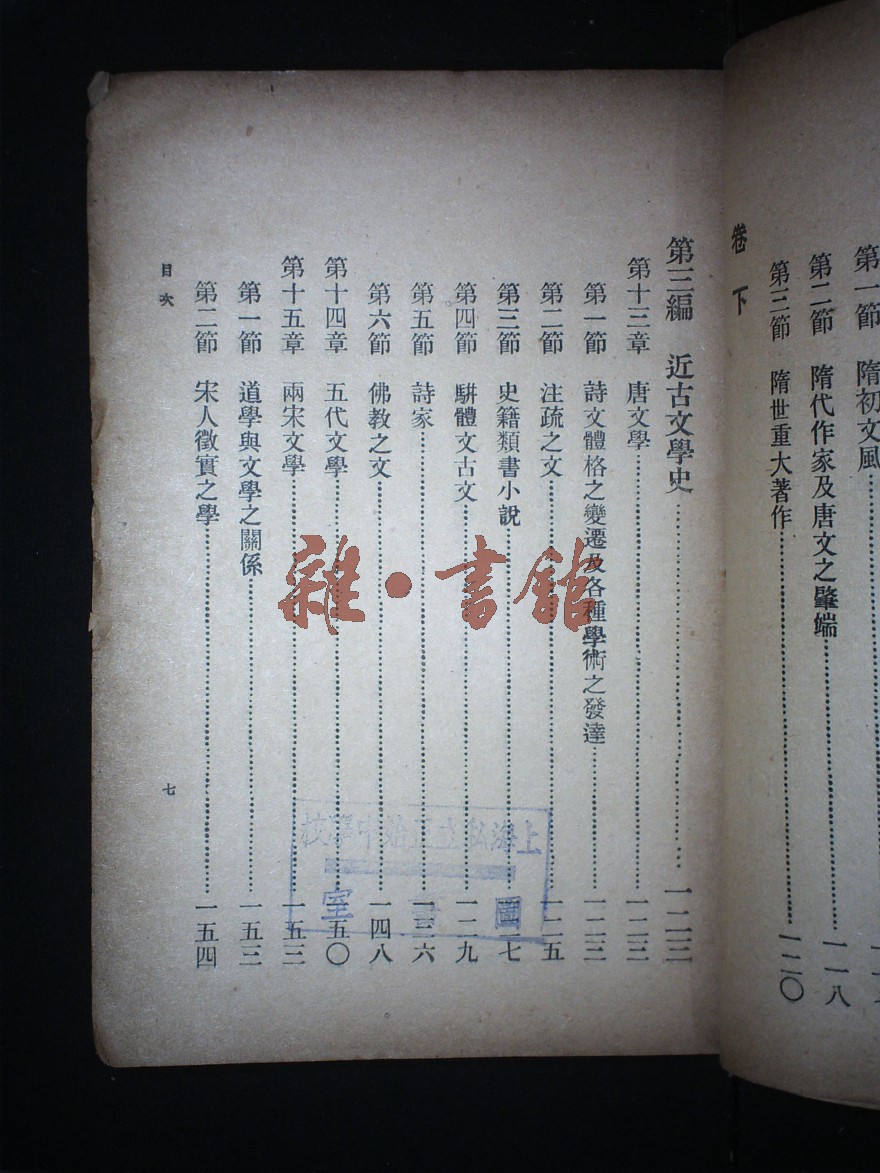 第一節 隋初文風
第二節 隋代作家及唐文之肇端 一一八
第三節 隋世重大著作 一二〇
卷下
第三編 近古文學史 一二三
第十三章 唐文學 一二三
第一節 詩文體格之變遷及各種學術之發達 一二三
第二節 注疏之文 一二五
第三節 史籍類書小說 七
第四節 駢體文古文 一二九
第五節 詩家 一三六
第六節 佛教之文 一四八
第十四章 五代文學 一五〇
第十五章 兩宋文學 一五三
第一節 道學與文學之關係 一五三
第二節 宋人徵實之學 一五四
目次
七
雜·書館
上海私立正始中學校
圖書室